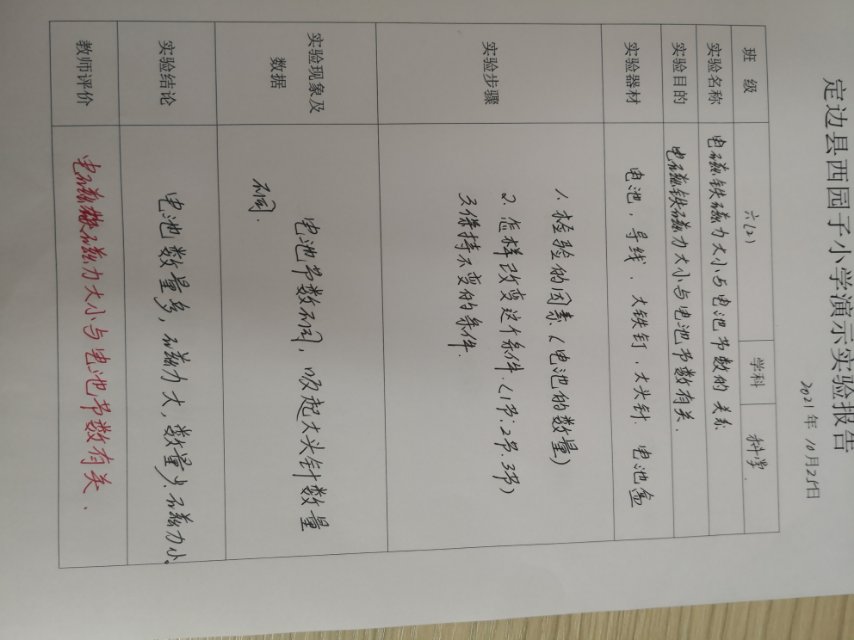 定边县西园子小学演示实验报告
2021年10月25日
班 级 六(2) 学科 科学.
实验名称 电磁铁磁力大小与电池节数的关系
实验目的 电磁铁磁力大小与电池节数有关.
实验器材 电池、导线、大铁钉、大头针 电池盒
实验步骤
1.检验的因素(电池的数量)
2.怎样改变这个条件.(1节;2节.3节)
3.保持不变的条件.
实验现象及
数据
电池节数不同,吸起大头针数量
不同.
实验结论 电池数量多,磁力大,数量少.磁力小。
教师评价 电磁铁磁力大小与电池节数有关.